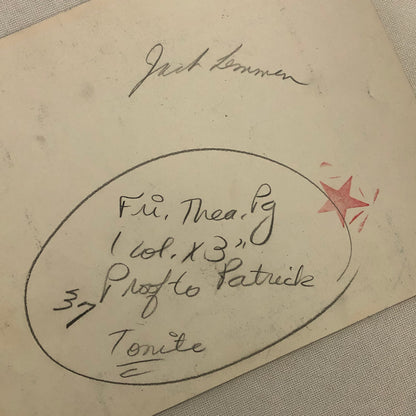 Jack Lemmon
Fri. Thea. Pg
1 col. x 3"
Proof to Patrick
37
Tonite